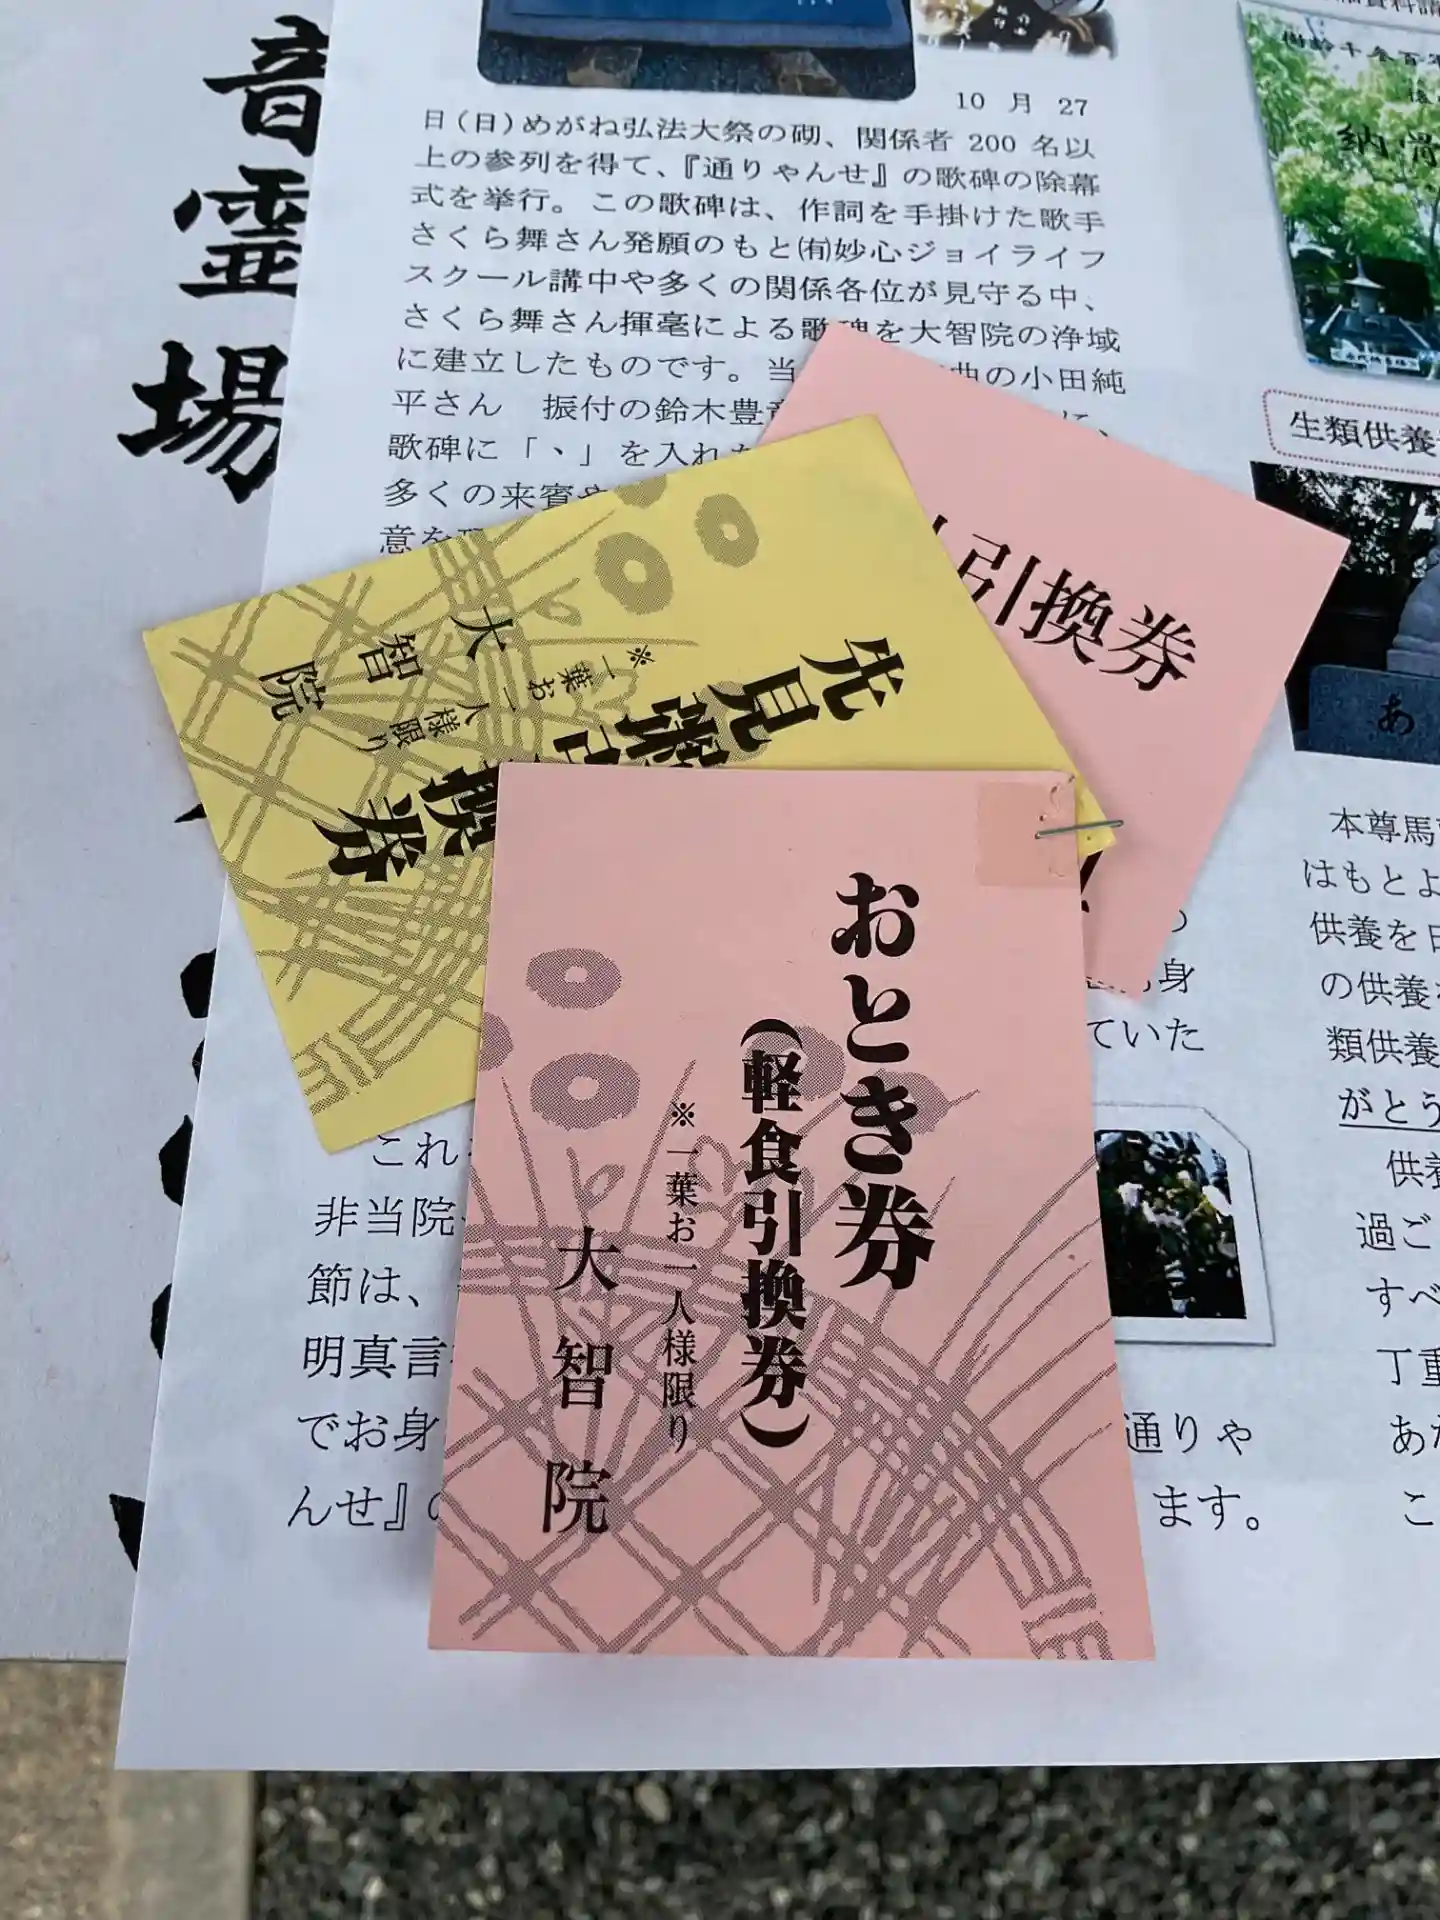 音霊場
10月27
日(日)めがね弘法大祭の砌、関係者200名以
上の参列を得て、『通りゃんせ』の歌碑の除幕
式を挙行。この歌碑は、作詞を手掛けた歌手
さくら舞さん発願のもと㈲妙心ジョイライフ
スクール講中や多くの関係各位が見守る中、
さくら舞さん揮毫による歌碑を大智院の浄域
に建立したものです。当
曲の小田純
平さん 振付の鈴木豊
に、
歌碑に「、」を入れた
多くの来賓や
意を
身
ていた
これ
非当院
節は、
明真言
でお身
通りゃ
んせ』の
ます。
引換券
先見
換券
※一葉お一人様限り
大智院
おとき券
(軽食引換券)
※一葉お一人様限り
大智院
樹齢千参百年
納骨
生類供養
あ
本尊馬
はもとよ
供養を日
の供養
類供養
がとう
供養
過ご
すべ
丁重
あ
こ